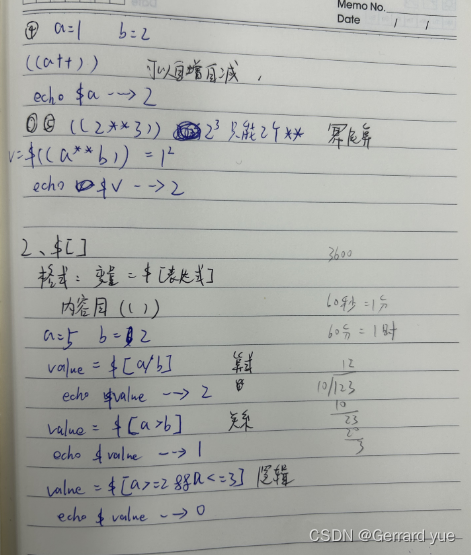 Memo No.
Date / /
④ a=1 b=2
((a++)) 可以自增自减,
echo $a --> 2
⑤ ((2**3)) 2³ 只能2个** 幂运算
v=$((a**b)) = 1²
echo $v --> 2
2、$[]
格式: 变量 = $[表达式]
内容同(())
a=5 b=2
value = $[a/b] 算术
echo $value --> 2
value = $[a>b] 关系
echo $value --> 1
value = $[a>=2&&a<=3] 逻辑
echo $value --> 0
3600
60秒=1分
60分=1时
12
10/123
10
23
20
3
CSDN @Gerrard_yue